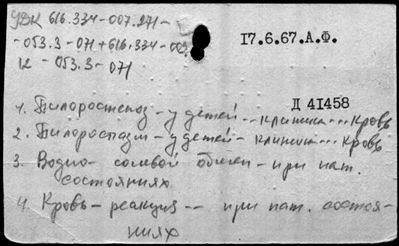 УДК 616.334-007.271-
-053.3-071+616.334-009.
12-053.3-071
17.6.67.А.Ф.
Д 41458
1. Пилоростеноз - у детей...клиника...кровь
2. Пилороспазм - у детей - клиник...кровь
3. Водно-солевой обмен - при пат.
состояниях
4. Кровь - реакция -- при пат. состоя-
ниях